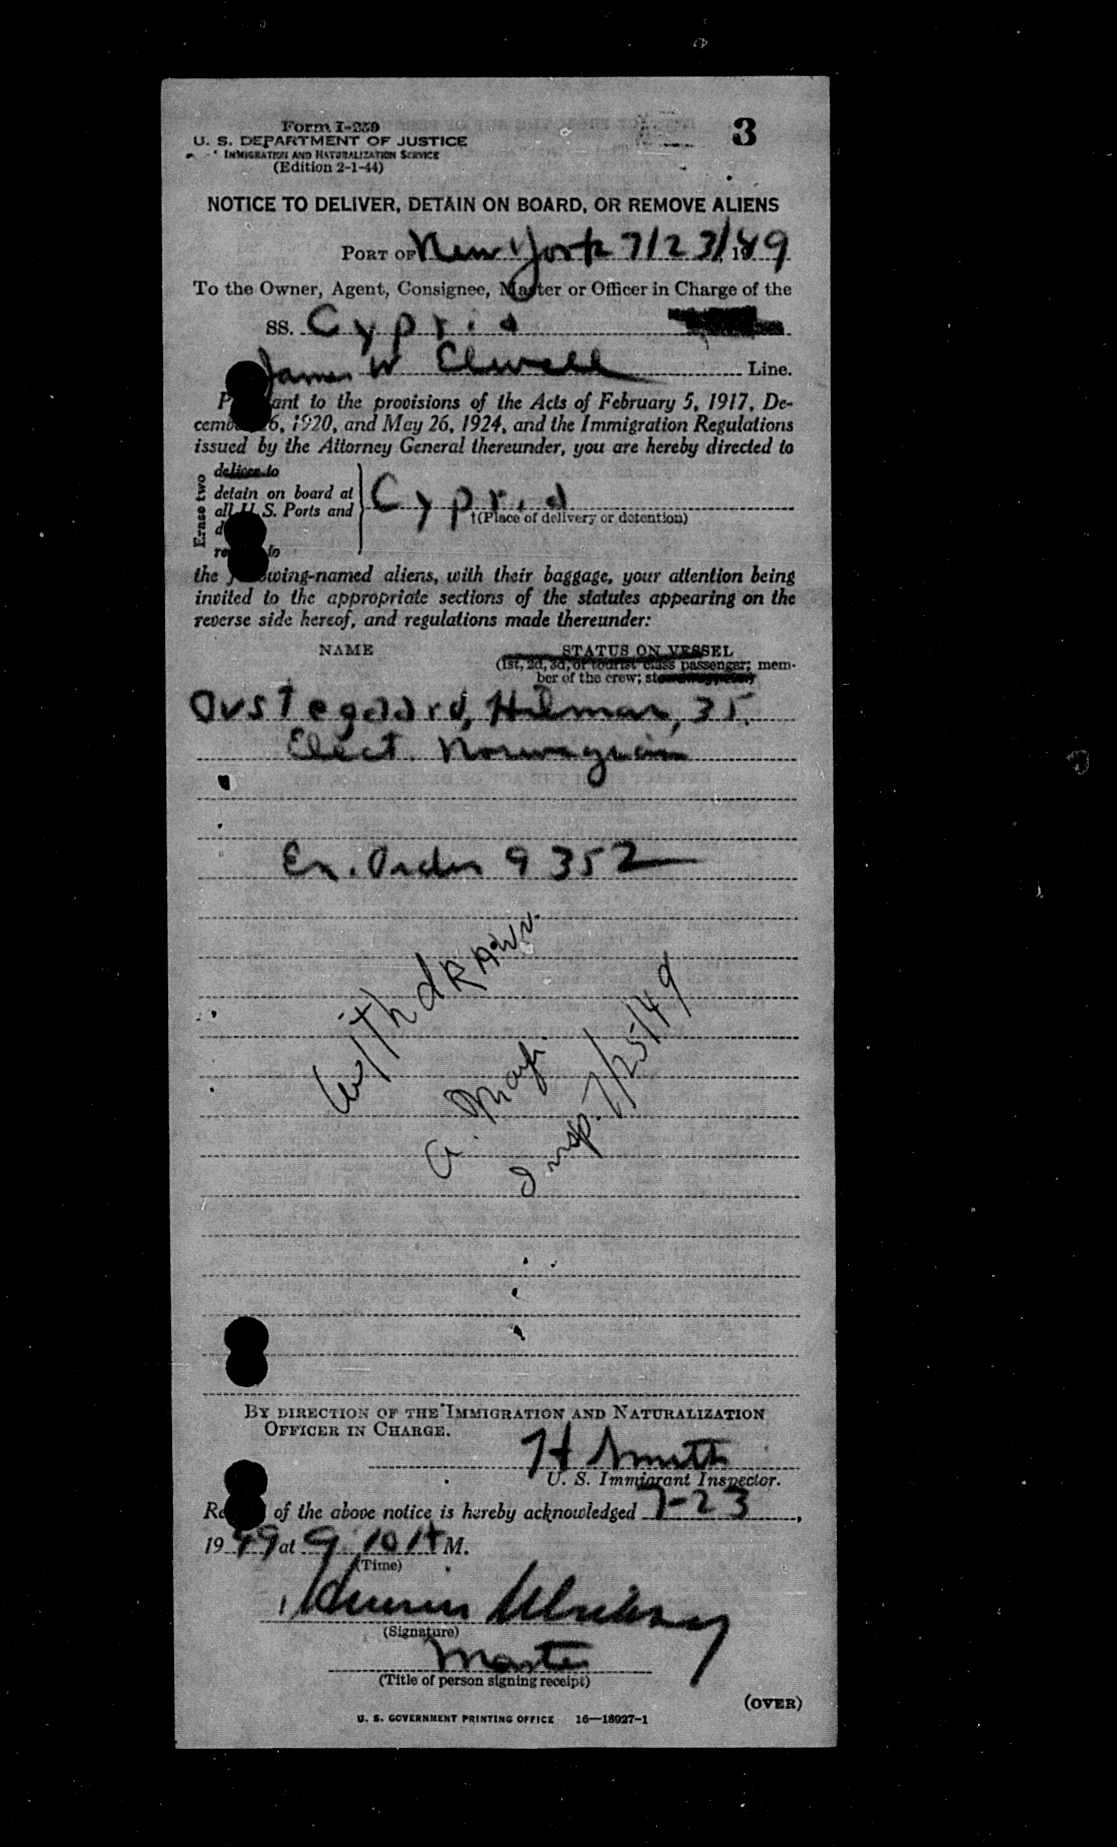 3
Form I-259
U. S. DEPARTMENT OF JUSTICE
IMMIGRATION AND NATURALIZATION SERVICE
(Edition 2-1-44)
NOTICE TO DELIVER, DETAIN ON BOARD, OR REMOVE ALIENS
PORT OF New York 7/23/, 1949
To the Owner, Agent, Consignee, Master or Officer in Charge of the
SS. Cypria
James W Elwell Line.
Pursuant to the provisions of the Acts of February 5, 1917, De-
cember 26, 1920, and May 26, 1924, and the Immigration Regulations
issued by the Attorney General thereunder, you are hereby directed to
Erase two
deliver to
detain on board at
all U. S. Ports and
remove to
Cypria
†(Place of delivery or detention)
the following-named aliens, with their baggage, your attention being
invited to the appropriate sections of the statutes appearing on the
reverse side hereof, and regulations made thereunder:
NAME
STATUS ON VESSEL
(1st, 2d, 3d, or tourist class passenger; mem-
ber of the crew;
Ovstegaard, Hilmar, 35.
Elect. Norwegian
Ex. Order 9352
Withdrawn
Insp. 7/25/49
BY DIRECTION OF THE IMMIGRATION AND NATURALIZATION
OFFICER IN CHARGE.
H Smith
U. S. Immigrant Inspector.
Receipt of the above notice is hereby acknowledged 7-23,
1949 at 9 10 A M.
(Time)
(Signature)
Master
(Title of person signing receipt)
(OVER)
U. S. GOVERNMENT PRINTING OFFICE 16—18927-1